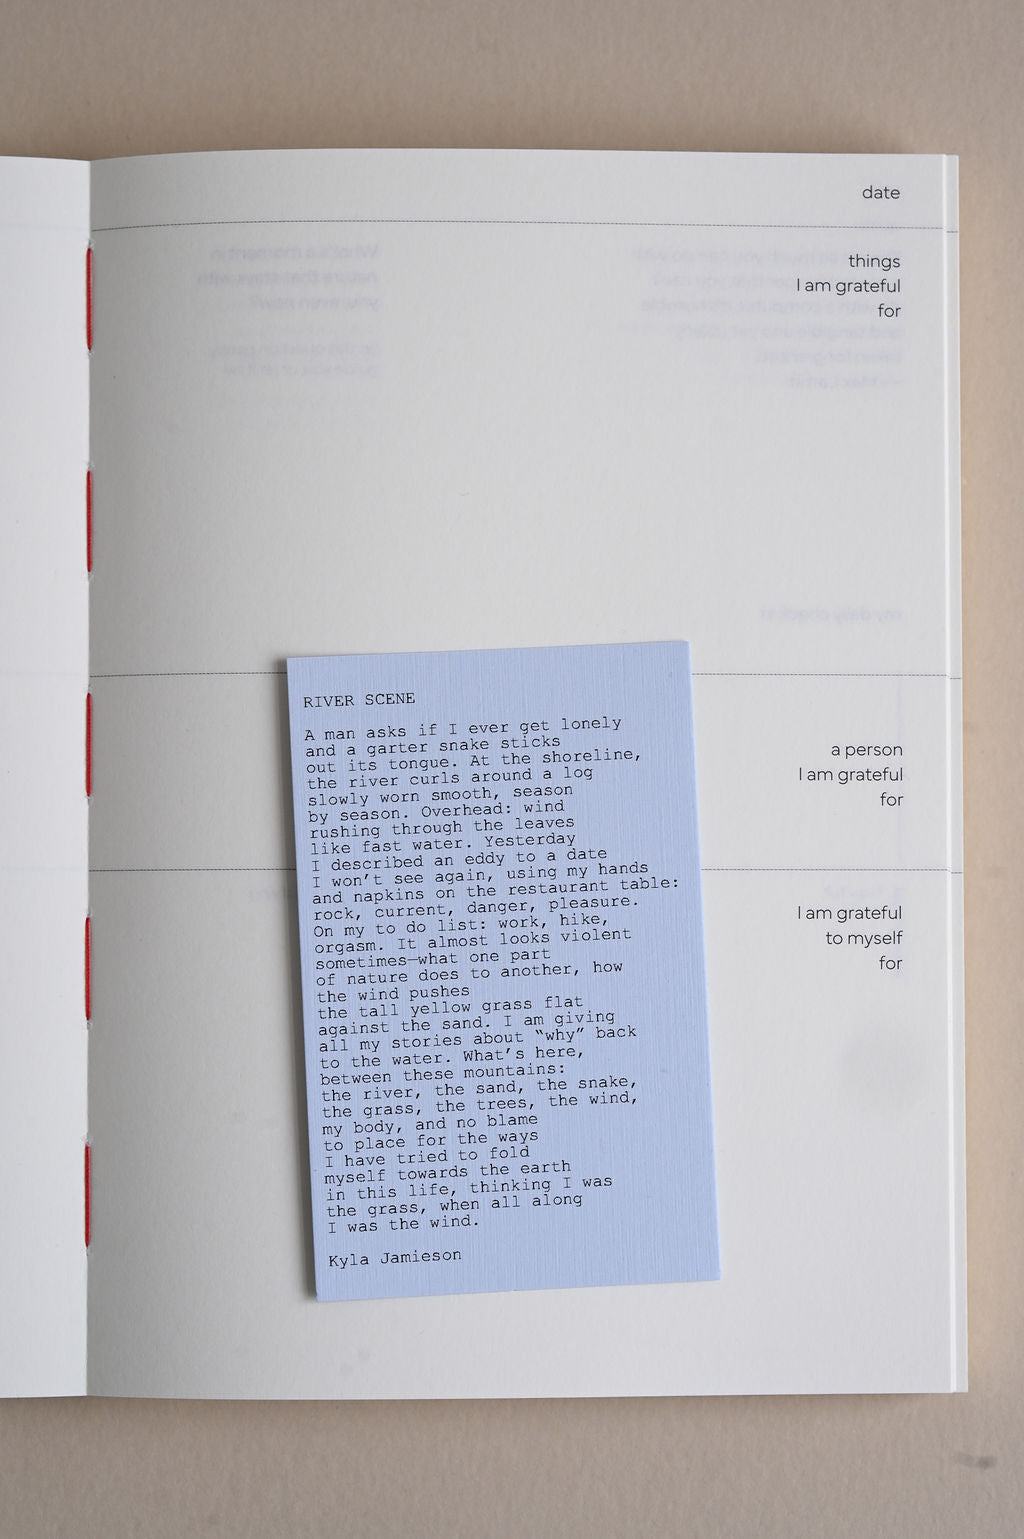 date
things
I am grateful
for
RIVER SCENE
A man asks if I ever get lonely
and a garter snake sticks
out its tongue. At the shoreline,
the river curls around a log
slowly worn smooth, season
by season. Overhead: wind
rushing through the leaves
like fast water. Yesterday
I described an eddy to a date
I won't see again, using my hands
and napkins on the restaurant table:
rock, current, danger, pleasure.
On my to do list: work, hike,
orgasm. It almost looks violent
sometimes—what one part
of nature does to another, how
the wind pushes
the tall yellow grass flat
against the sand. I am giving
all my stories about “why” back
to the water. What's here,
between these mountains:
the river, the sand, the snake,
the grass, the trees, the wind,
my body, and no blame
to place for the ways
I have tried to fold
myself towards the earth
in this life, thinking I was
the grass, when all along
I was the wind.
Kyla Jamieson
a person
I am grateful
for
I am grateful
to myself
for
What's a moment in
nature that stays with
you, even now?
my daily checklist